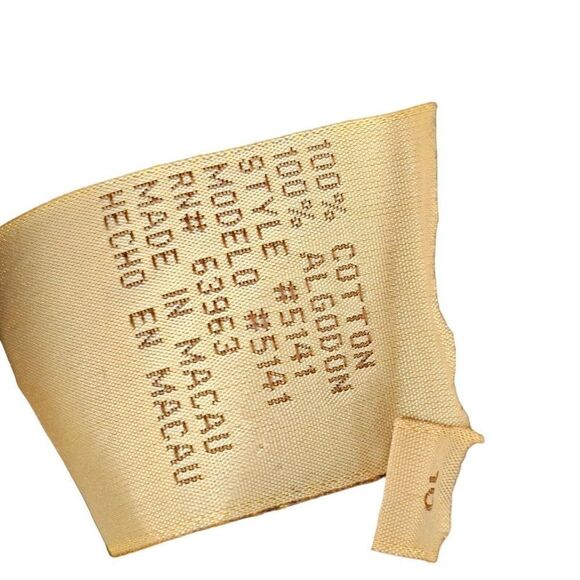 100% COTTON
100% ALGODON
STYLE #5141
MODELO #5141
RN# 63963
MADE IN MACAU
HECHO EN MACAU
10